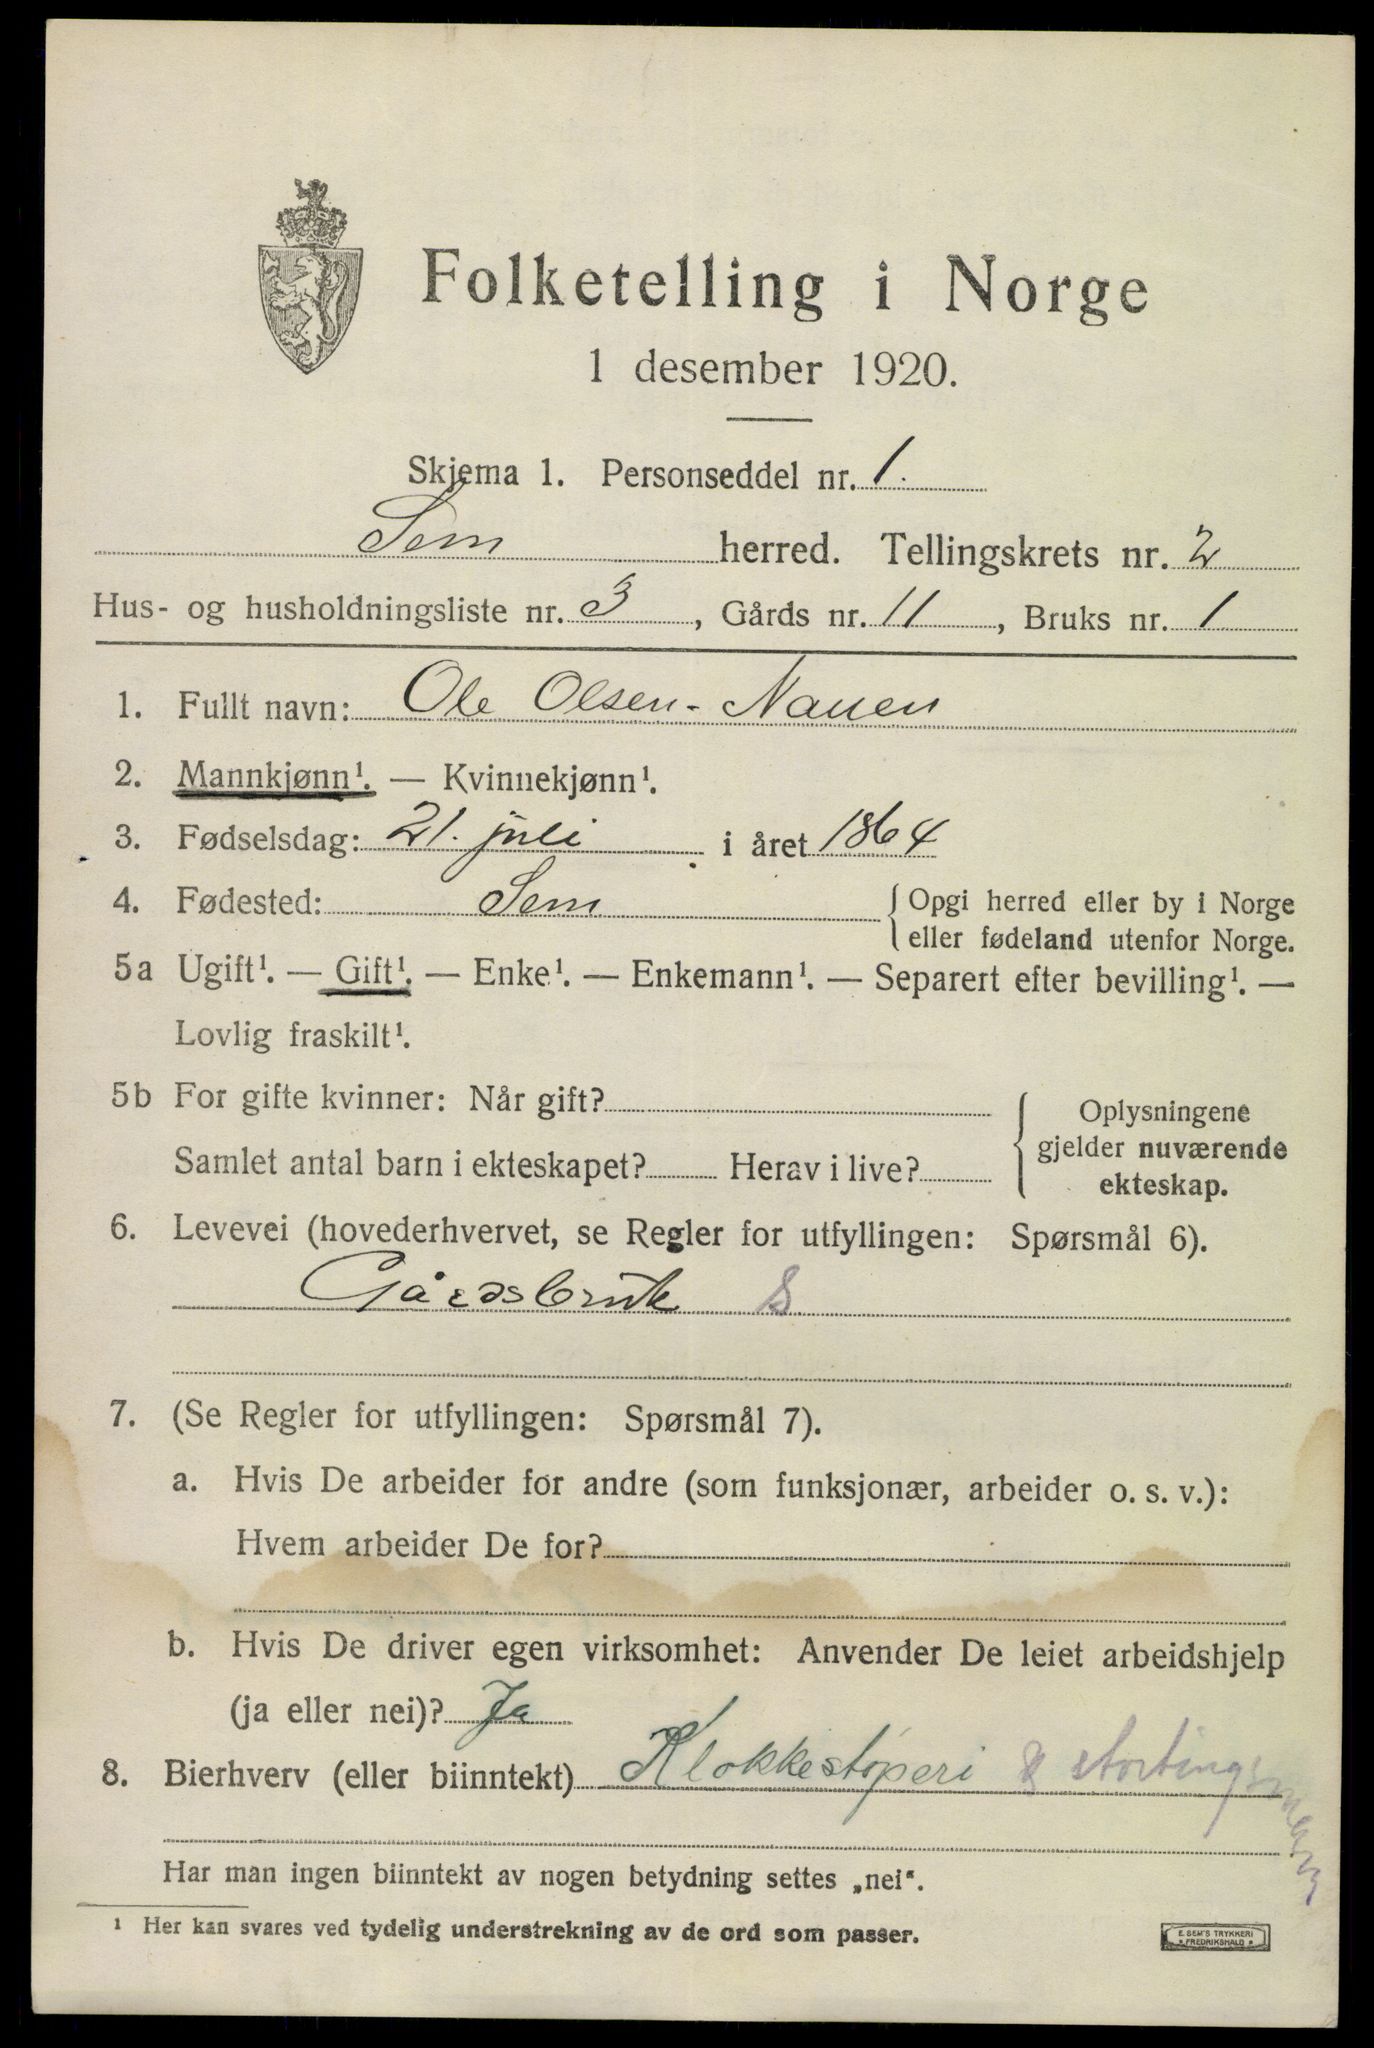 Folketelling i Norge
1 desember 1920.
Skjema 1. Personseddel nr. 1.
Sem herred. Tellingskrets nr. 2
Hus- og husholdningsliste nr. 3, Gårds nr. 11, Bruks nr. 1
1. Fullt navn: Ole Olsen-Nauen
2. Mannkjønn¹. — Kvinnekjønn¹.
3. Fødselsdag: 21. juli i året 1864
4. Fødested: Sem { Opgi herred eller by i Norge
eller fødeland utenfor Norge.
5a Ugift¹. — Gift¹. — Enke¹. — Enkemann¹. — Separert efter bevilling¹. —
Lovlig fraskilt¹.
5b For gifte kvinner: Når gift? { Oplysningene
gjelder nuværende
Samlet antal barn i ekteskapet? Herav i live?
ekteskap.
6. Levevei (hovederhvervet, se Regler for utfyllingen: Spørsmål 6).
Gårdsbruk S
7. (Se Regler for utfyllingen: Spørsmål 7).
a. Hvis De arbeider for andre (som funksjonær, arbeider o. s. v.):
Hvem arbeider De for?
b. Hvis De driver egen virksomhet: Anvender De leiet arbeidshjelp
(ja eller nei)? Ja
8. Bierhverv (eller biinntekt) Klokkestøperi & stortingsmann
Har man ingen biinntekt av nogen betydning settes „nei“.
¹ Her kan svares ved tydelig understrekning av de ord som passer.
E. SEM'S TRYKKERI
FREDRIKSHALD